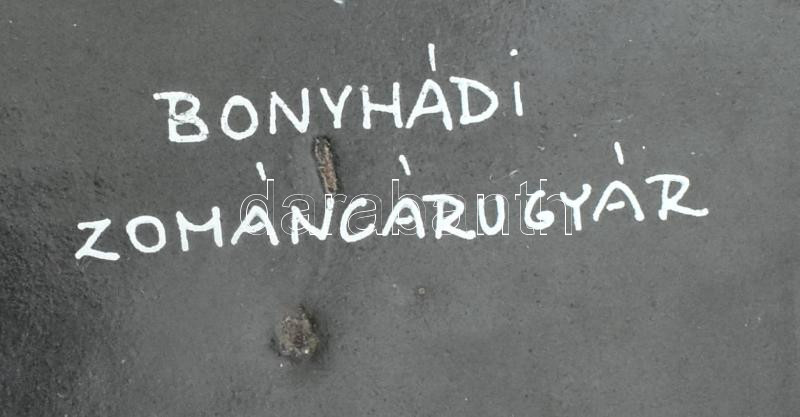 BONYHÁDi
ZOMÁNCÁRUGYÁR
darabanth